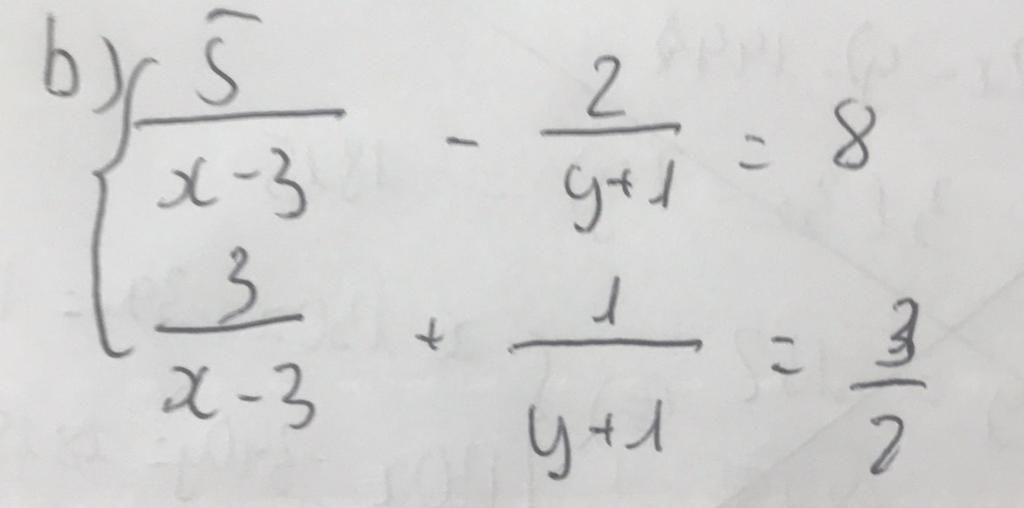 b) { 5/(x-3) - 2/(y+1) = 8
3/(x-3) + 1/(y+1) = 3/2